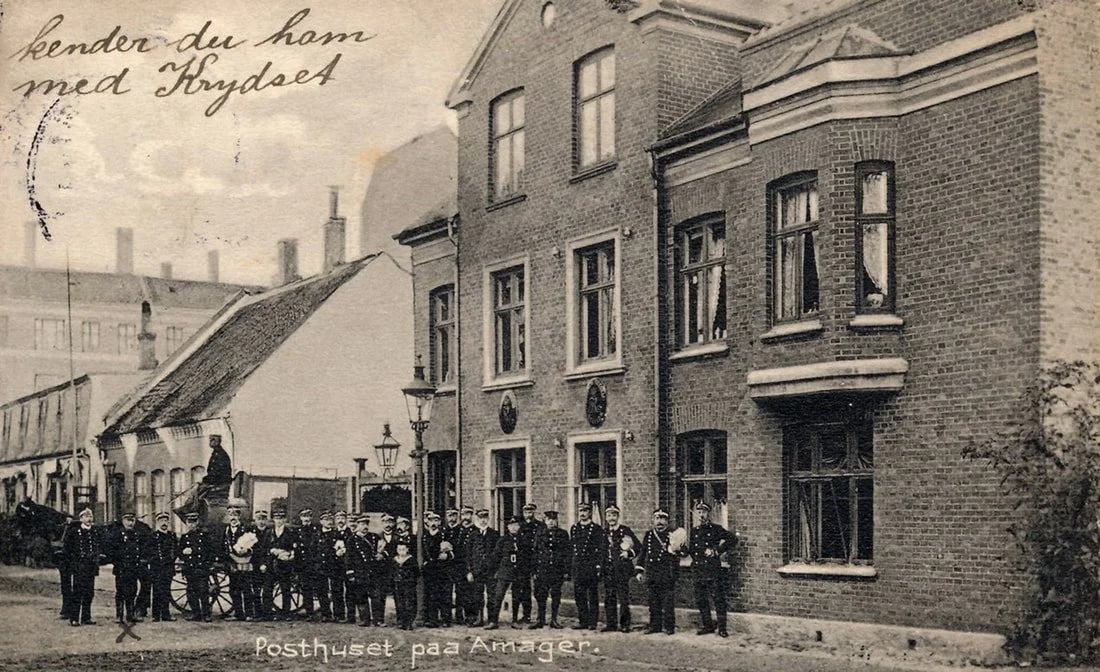 kender du ham
med Krydset
Posthuset paa Amager.